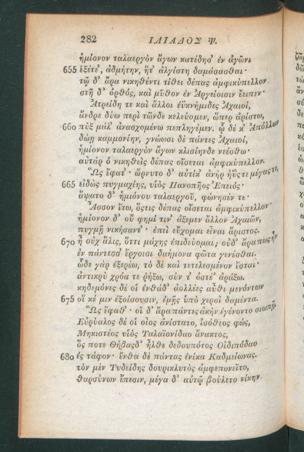 282 ΙΛΙΑΔΟΣ Ψ.
ἡμίονον ταλαεργὸν ἄγων κατέδησ' ἐν ἀγῶνι
655 ἑξέτε', ἀδμήτην, ἥτ' ἀλγίστη δαμάσασθαι·
τῷ δ' ἄρα νικηθέντι τίθει δέπας ἀμφικύπελλον.
στῆ δ' ὀρθός, καὶ μῦθον ἐν Ἀργείοισιν ἔειπεν·
Ἀτρείδη τε καὶ ἄλλοι ἐϋκνήμιδες Ἀχαιοί,
ἄνδρε δύω περὶ τῶνδε κελεύομεν, ὥπερ ἀρίστω,
660 πὺξ μάλ' ἀνασχομένω πεπληγέμεν. ᾧ δέ κ' Ἀπόλλων
δώῃ καμμονίην, γνώωσι δὲ πάντες Ἀχαιοί,
ἡμίονον ταλαεργὸν ἄγων κλισίηνδε νεέσθω·
αὐτὰρ ὁ νικηθεὶς δέπας οἴσεται ἀμφικύπελλον.
Ὣς ἔφατ'· ὤρνυτο δ' αὐτίκ' ἀνὴρ ἠΰς τε μέγας τε,
665 εἰδὼς πυγμαχίης, υἱὸς Πανοπῆος Ἐπειός·
ἅψατο δ' ἡμιόνου ταλαεργοῦ, φώνησέν τε·
Ἆσσον ἴτω, ὅςτις δέπας οἴσεται ἀμφικύπελλον·
ἡμίονον δ' οὔ φημί τιν' ἀξέμεν ἄλλον Ἀχαιῶν,
πυγμῇ νικήσαντ'· ἐπεὶ εὔχομαι εἶναι ἄριστος.
670 ἦ οὐχ ἅλις, ὅττι μάχης ἐπιδεύομαι; οὐδ' ἄρα πως ἦν
ἐν πάντεσσ' ἔργοισι δαήμονα φῶτα γενέσθαι.
ὧδε γὰρ ἐξερέω, τὸ δὲ καὶ τετελεσμένον ἔσται·
ἀντικρὺ χρόα τε ῥήξω, σύν τ' ὀστέ' ἀράξω.
κηδεμόνες δέ οἱ ἐνθάδ' ἀολλέες αὖθι μενόντων
675 οἵ κέ μιν ἐξοίσουσιν, ἐμῇς ὑπὸ χερσὶ δαμέντα.
Ὣς ἔφαθ'· οἱ δ' ἄρα πάντες ἀκὴν ἐγένοντο σιωπῇ.
Εὐρύαλος δέ οἱ οἶος ἀνίστατο, ἰσόθεος φώς,
Μηκιστέος υἱὸς Ταλαϊονίδαο ἄνακτος,
ὅς ποτε Θήβαςδ' ἦλθε δεδουπότος Οἰδιπόδαο
680 ἐς τάφον· ἔνθα δὲ πάντας ἐνίκα Καδμείωνας.
τὸν μὲν Τυδείδης δουρικλυτὸς ἀμφεπονεῖτο,
θαρσύνων ἔπεσιν, μέγα δ' αὐτῷ βούλετο νίκην.